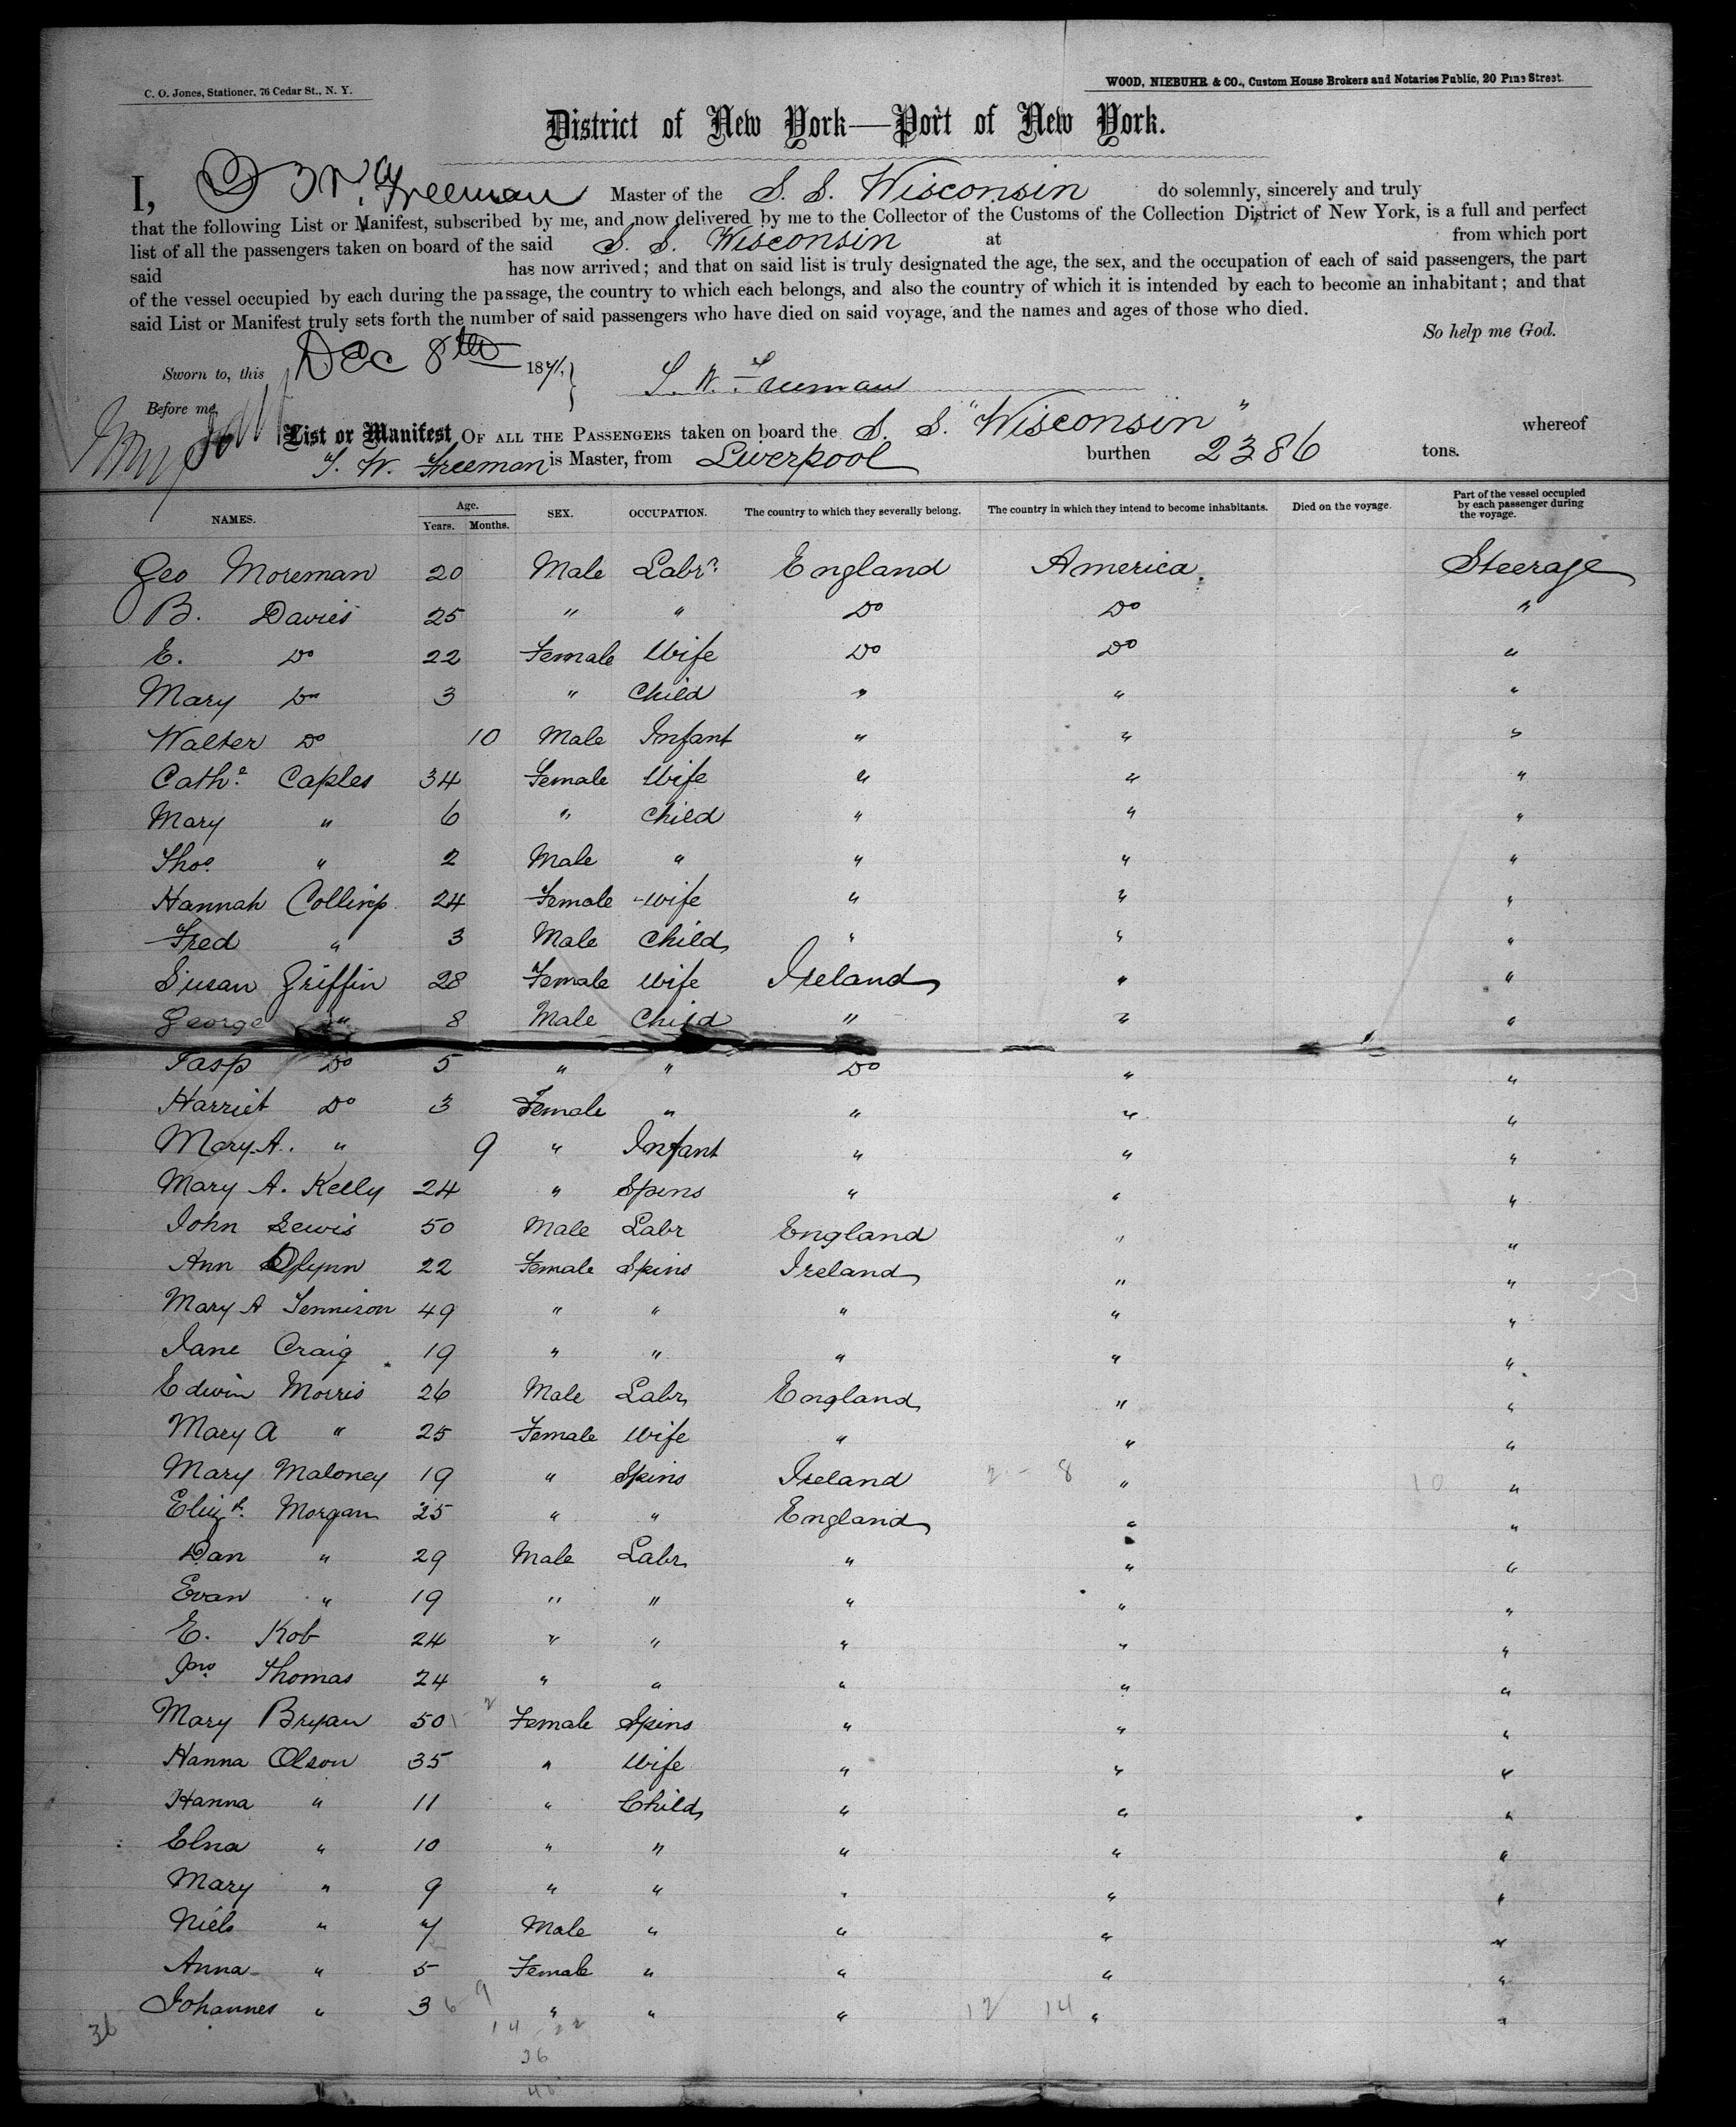 C. O. Jones, Stationer, 76 Cedar St., N. Y.
WOOD, NIEBUHR & CO., Custom House Brokers and Notaries Public, 20 Pine Street.
District of New York—Port of New York.
I, Freeman Master of the S. S. Wisconsin do solemnly, sincerely and truly
that the following List or Manifest, subscribed by me, and now delivered by me to the Collector of the Customs of the Collection District of New York, is a full and perfect
list of all the passengers taken on board of the said S. S. Wisconsin at from which port
said has now arrived; and that on said list is truly designated the age, the sex, and the occupation of each of said passengers, the part
of the vessel occupied by each during the passage, the country to which each belongs, and also the country of which it is intended by each to become an inhabitant; and that
said List or Manifest truly sets forth the number of said passengers who have died on said voyage, and the names and ages of those who died.
So help me God.
Sworn to, this Dec 8th 1871. T. W. Freeman
Before me,
List or Manifest OF ALL THE PASSENGERS taken on board the S. S. "Wisconsin" whereof
T. W. Freeman is Master, from Liverpool burthen 2386 tons.
NAMES. Age. Years. Months. SEX. OCCUPATION. The country to which they severally belong. The country in which they intend to become inhabitants. Died on the voyage. Part of the vessel occupied by each passenger during the voyage.
Geo Moreman 20 Male Labr. England America. Steerage
B. Davies 25 " " Do Do "
E. Do 22 Female Wife Do Do "
Mary Do 3 " Child " " "
Walter Do 10 Male Infant " " "
Cathe. Caples 34 Female Wife " " "
Mary " 6 " Child " " "
Thos. " 2 Male " " " "
Hannah 24 Female Wife " " "
Fred " 3 Male Child " " "
Susan Griffin 28 Female Wife Ireland " "
George " 8 Male Child " " "
Do 5 " " Do " "
Harriet Do 3 Female " " " "
Mary A. " 9 " Infant " " "
Mary A. Kelly 24 " Spins " " "
John Lewis 50 Male Labr England " "
Ann Glynn 22 Female Spins Ireland " "
Mary A Tennison 49 " " " " "
Jane Craig 19 " " " " "
Edwin Morris 26 Male Labr England " "
Mary A " 25 Female Wife " " "
Mary Maloney 19 " Spins Ireland 2 - 8 " 10 "
Elizh. Morgan 25 " " England " "
Dan " 29 Male Labr " " "
Evan " 19 " " " " "
E. Kob 24 " " " " "
Jno. Thomas 24 " " " " "
Mary Bryan 50 Female Spins " " "
Hanna Olson 35 " Wife " " "
Hanna " 11 " Child " " "
Elna " 10 " " " " "
Mary " 9 " " " " "
Niels " 7 Male " " " "
Anna " 5 Female " " " "
Johannes " 3 " " " 12 14 " "
36 14 22
36